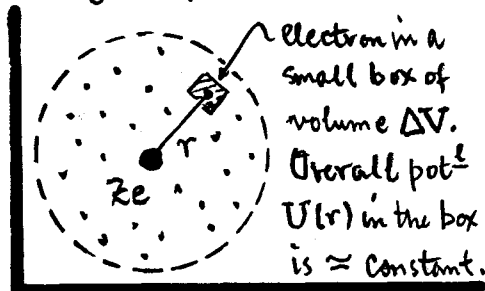 electron in a
small box of
volume ΔV.
Overall potˡ
U(r) in the box
is ≈ constant.
r
Ze